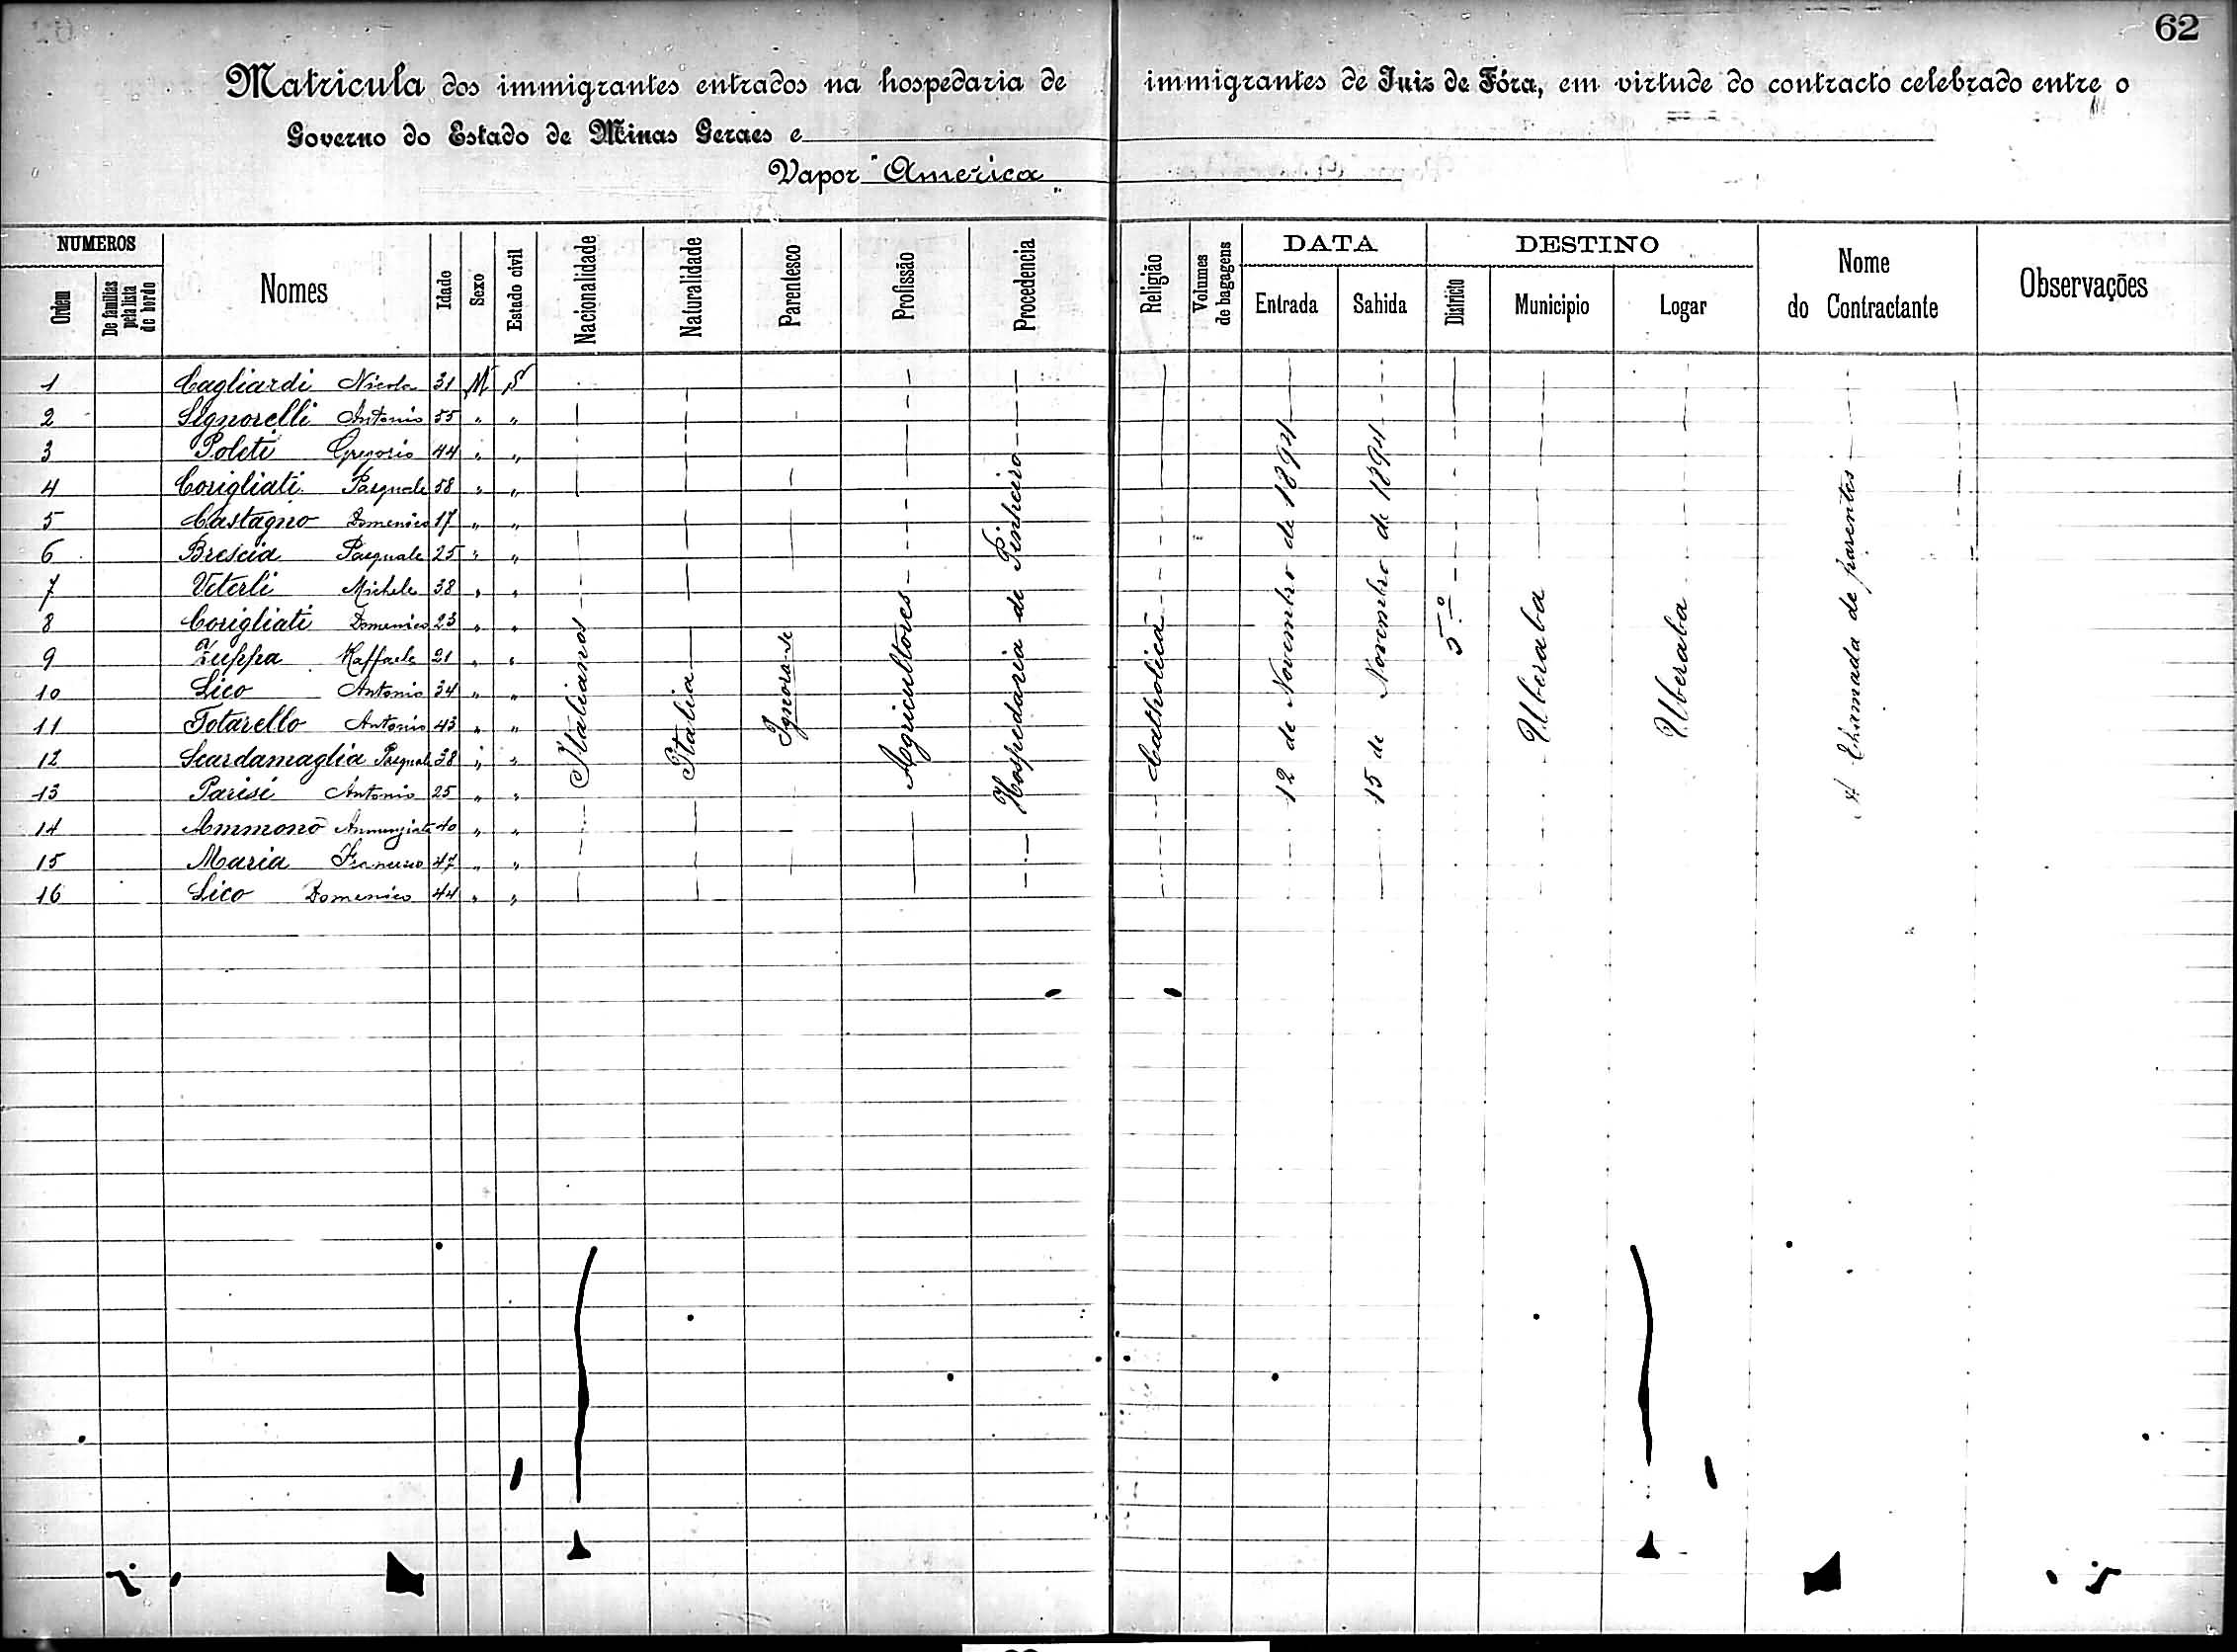 62
Matricula dos immigrantes entrados na hospedaria de immigrantes de Juiz de Fóra, em virtude do contracto celebrado entre o
Governo do Estado de Minas Geraes e
Vapor "America"
NUMEROS
Ordem
De familias pela lista de bordo
Nomes
Idade
Sexo
Estado civil
Nacionalidade
Naturalidade
Parentesco
Profissão
Procedencia
Religião
Volumes de bagagens
DATA
Entrada
Sahida
DESTINO
Districto
Municipio
Logar
Nome do Contractante
Observações
1 Cagliardi Nicola 31 M S
2 Signorelli Antonio 55 " "
3 Poleti Gregorio 44 " "
4 Corigliati Pasquale 58 " "
5 Castagno Domenico 17 " "
6 Brescia Pasquale 25 " "
7 Veterli Michele 38 " "
8 Corigliati Domenico 23 " "
9 Zuppa Raffaele 21 " "
10 Lico Antonio 34 " "
11 Totarello Antonio 43 " "
12 Scardamaglia Pasquale 38 " "
13 Parisi Antonio 25 " "
14 Ammono Annunziata 40 " "
15 Maria Francesco 47 " "
16 Lico Domenico 44 " "
Italianos
Italia
Ignora-se
Agricultores
Hospedaria de Pinheiro
Catholica
12 de Novembro de 1894
15 de Novembro de 1894
5.º
Uberaba
Uberaba
A Chamada de parentes